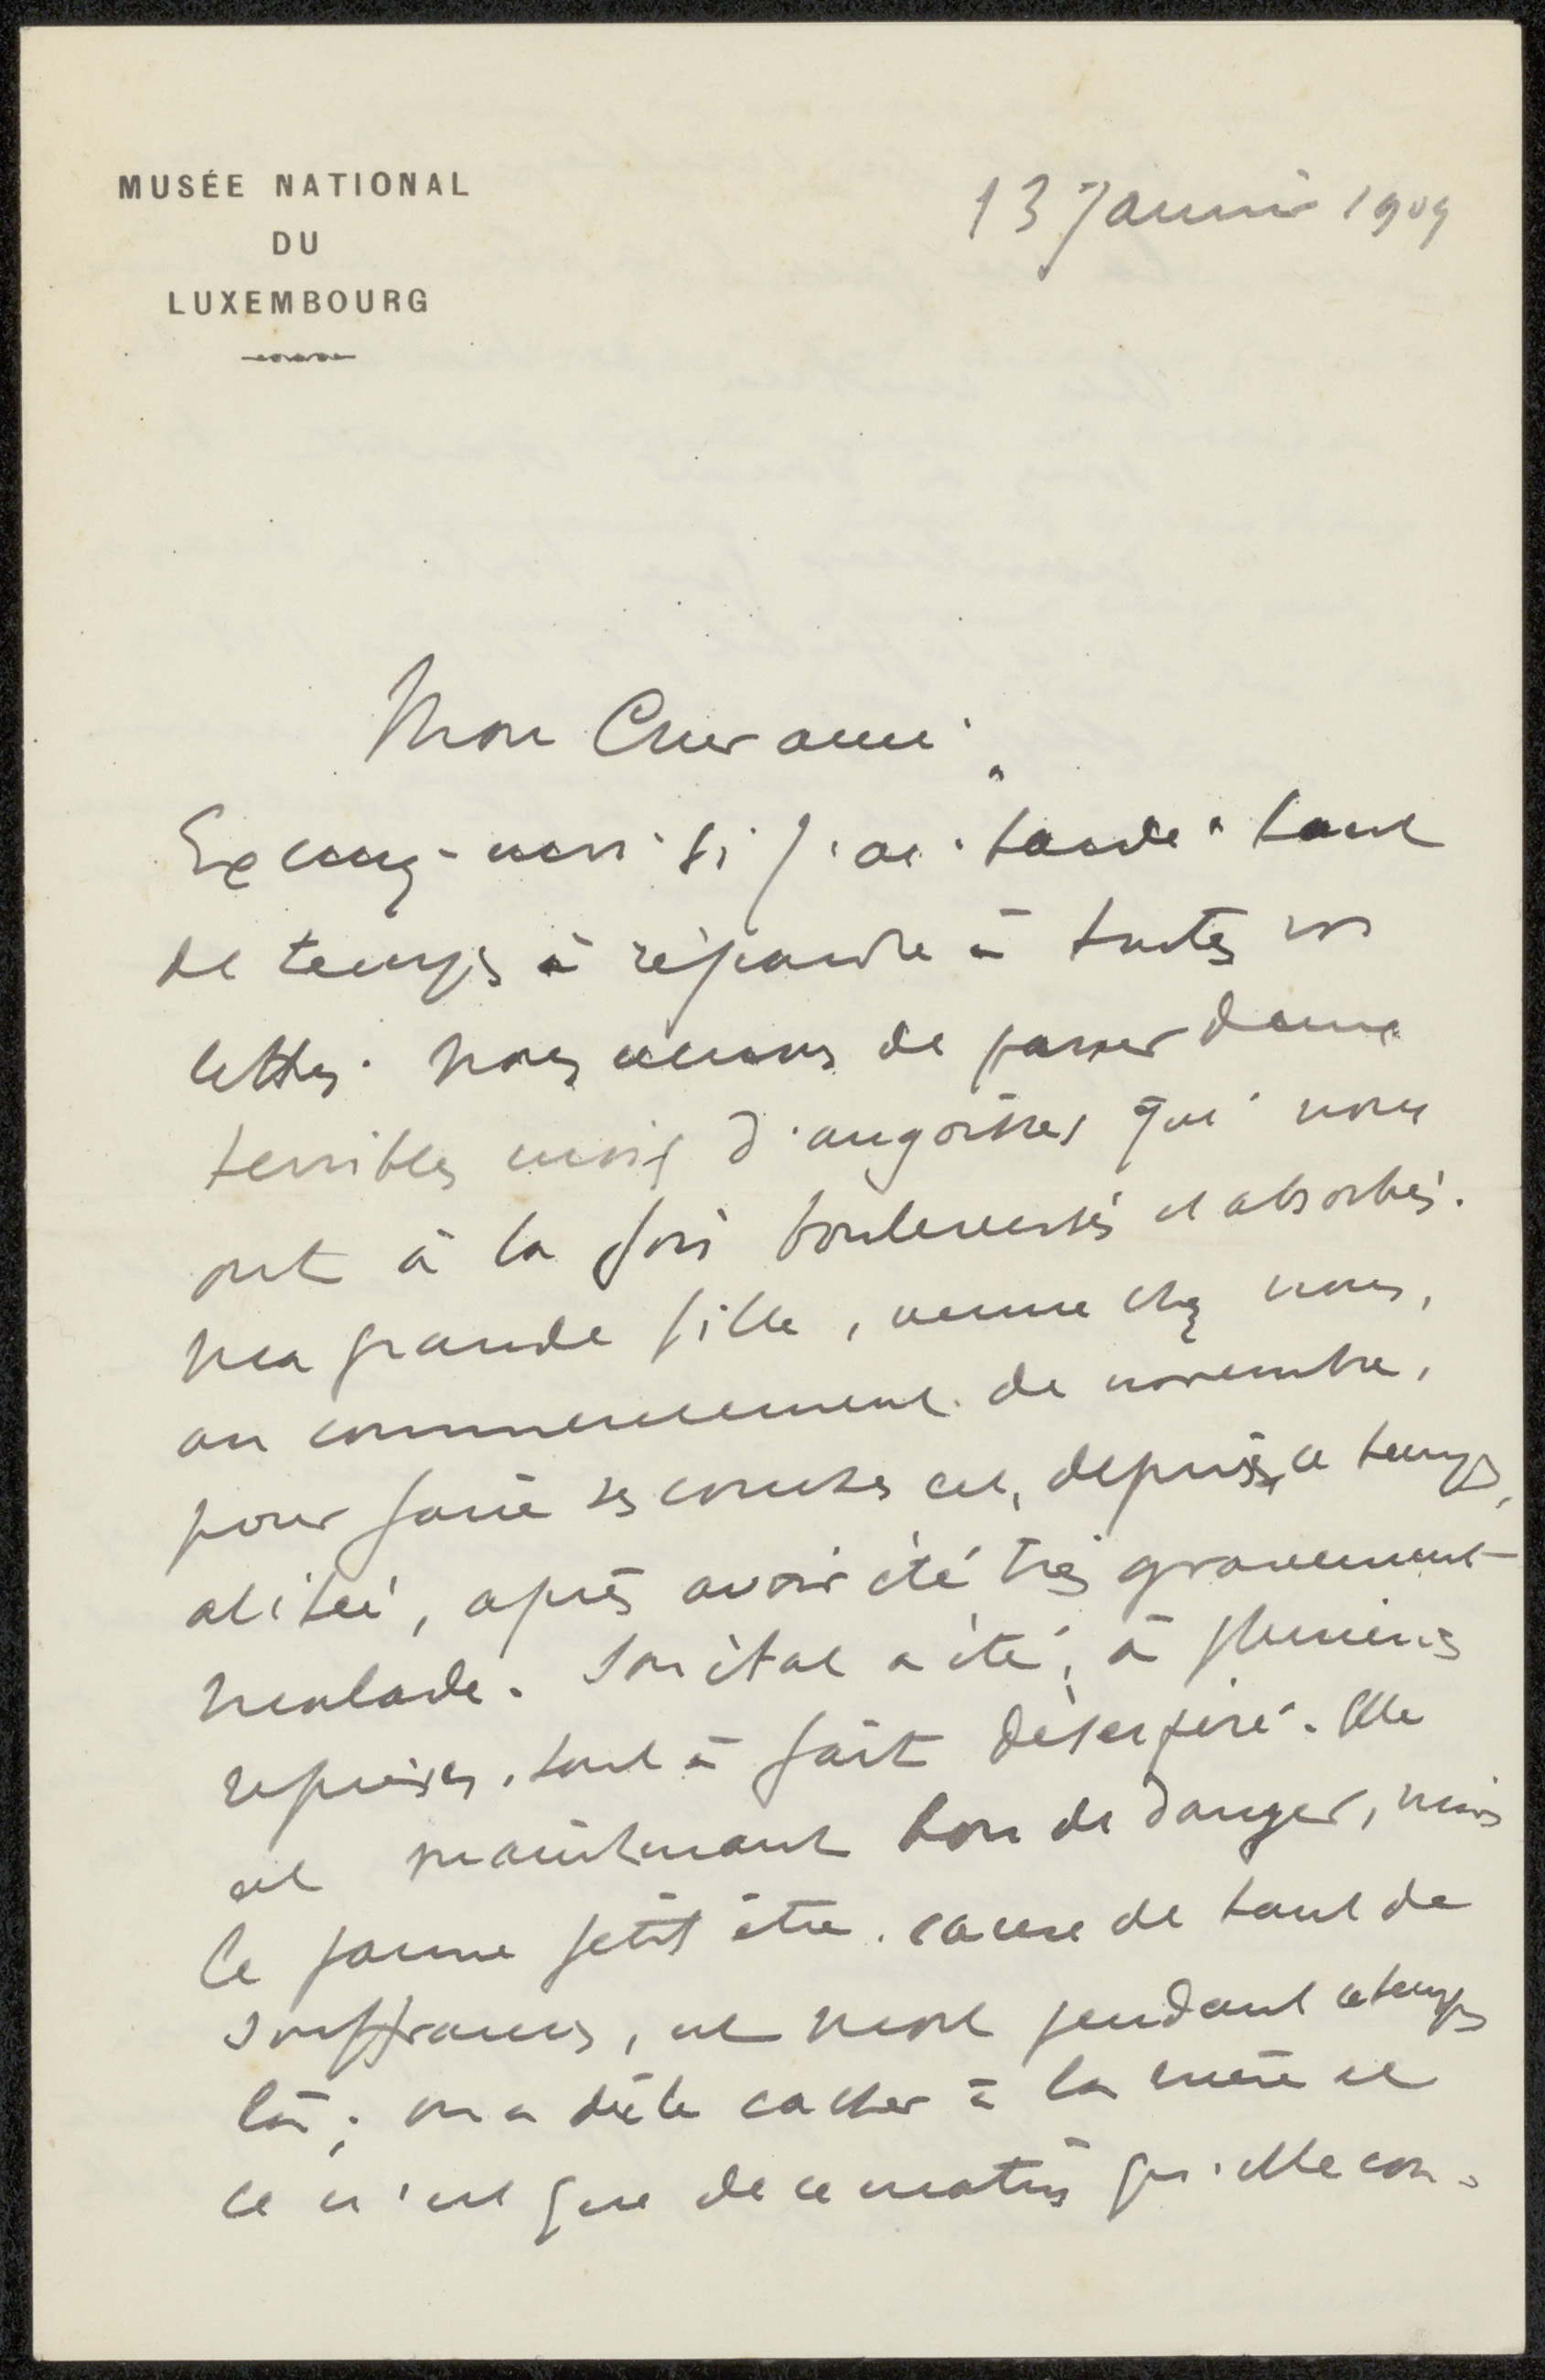 MUSÉE NATIONAL
DU
LUXEMBOURG
13 Janvier 1909
Mon Cher ami,
Excusez-moi si j'ai tardé tant
de temps à répondre à toutes vos
lettres. Nous venons de passer deux
terribles mois d'angoisses qui nous
ont à la fois bouleversés et absorbés.
Ma grande fille, venue chez nous,
au commencement de novembre,
pour faire ses couches est, depuis ce temps,
alitée, après avoir été très gravement
malade. Son état a été, à plusieurs
reprises, tout à fait désespéré. Elle
est maintenant hors de danger, mais
le pauvre petit être, cause de tant de
souffrances, est mort pendant ce temps
là; on a dû le cacher à la mère et
ce n'est que de ce matin qu'elle con-